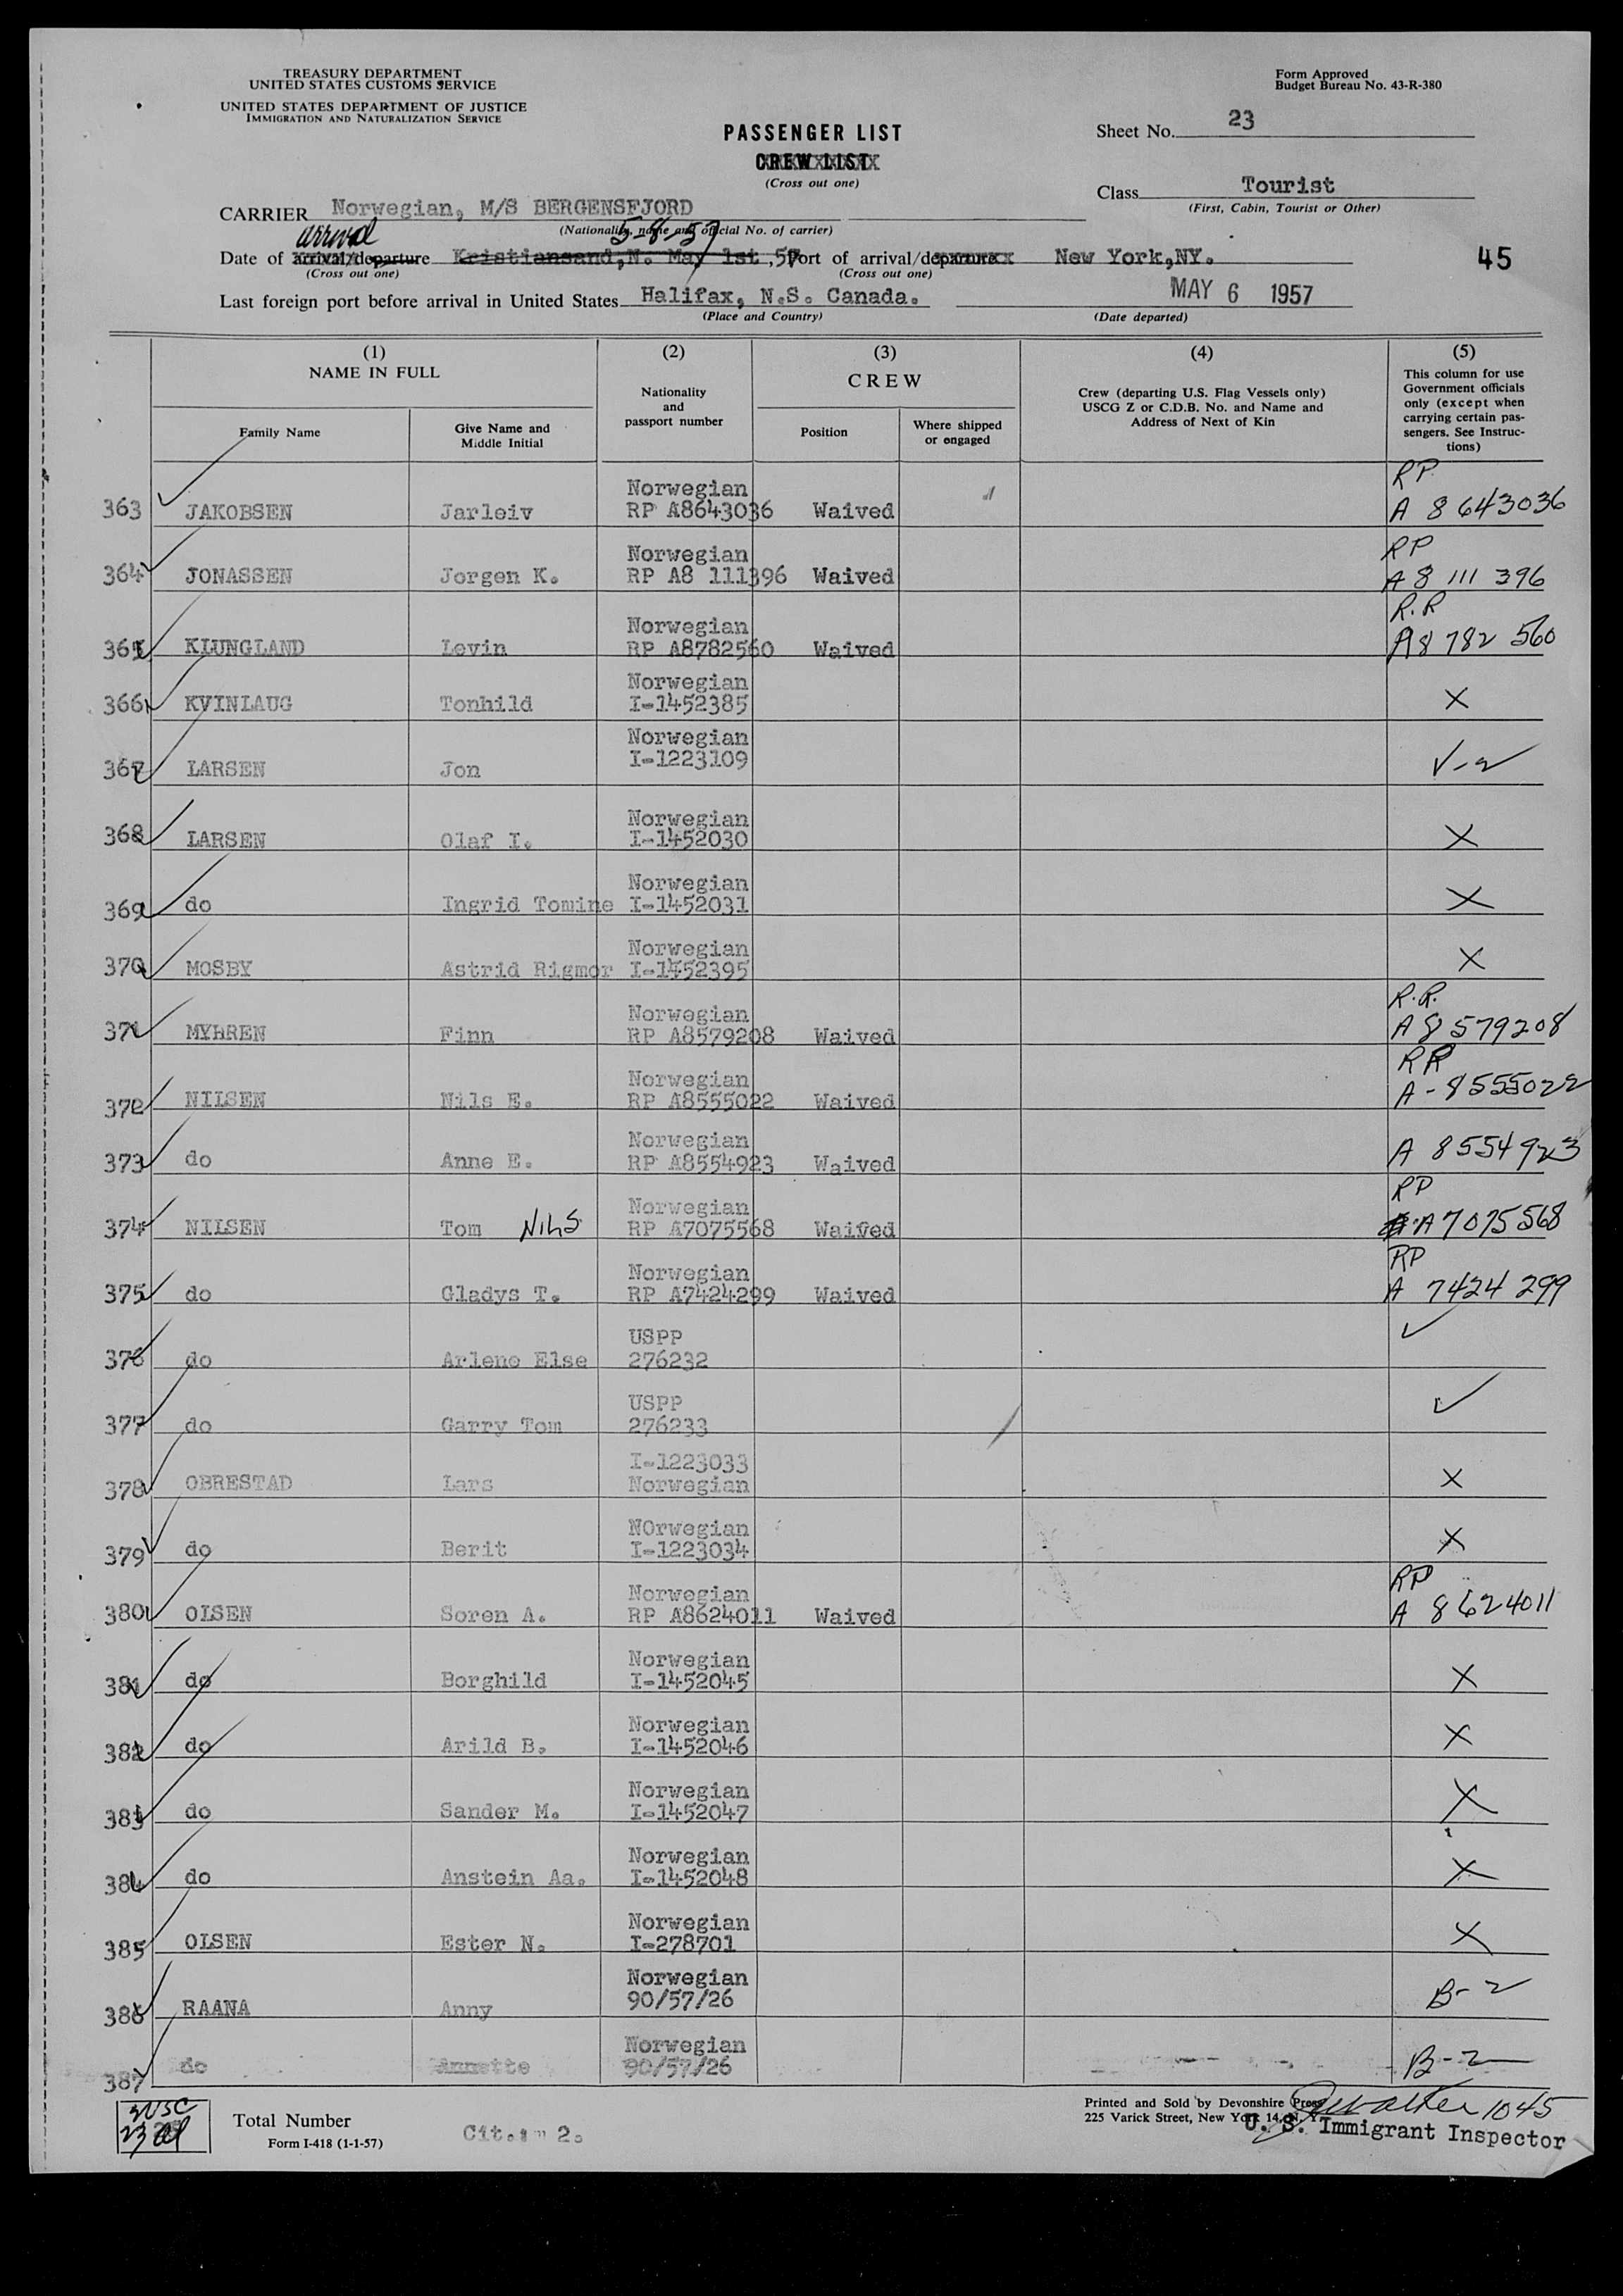 TREASURY DEPARTMENT
UNITED STATES CUSTOMS SERVICE
UNITED STATES DEPARTMENT OF JUSTICE
IMMIGRATION AND NATURALIZATION SERVICE
Form Approved
Budget Bureau No. 43-R-380
PASSENGER LIST
CREW LIST
(Cross out one)
Sheet No. 23
Class Tourist
(First, Cabin, Tourist or Other)
CARRIER Norwegian, M/S BERGENSFJORD
(Nationality, name and official No. of carrier)
arrival 5-8-57
Date of arrival/departure Kristiansand, N. May 1st, 57 Port of arrival/departure New York, NY. 45
(Cross out one) (Cross out one)
Last foreign port before arrival in United States Halifax, N.S. Canada. MAY 6 1957
(Place and Country) (Date departed)
(1) (2) (3) (4) (5)
NAME IN FULL
Nationality and passport number
CREW
Crew (departing U.S. Flag Vessels only) USCG Z or C.D.B. No. and Name and Address of Next of Kin
This column for use Government officials only (except when carrying certain passengers. See Instructions)
Family Name
Give Name and Middle Initial
Position
Where shipped or engaged
363 JAKOBSEN Jarleiv Norwegian RP A8643036 Waived RP A 8 643036
364 JONASSEN Jorgen K. Norwegian RP A8 111396 Waived RP A 8 111 396
365 KLUNGLAND Levin Norwegian RP A8782560 Waived R.P A8 782 560
366 KVINLAUG Tonhild Norwegian I-1452385 X
367 LARSEN Jon Norwegian I-1223109
368 LARSEN Olaf I. Norwegian I-1452030 X
369 do Ingrid Tomine Norwegian I-1452031 X
370 MOSBY Astrid Rigmor Norwegian I-1452395 X
371 MYHREN Finn Norwegian RP A8579208 Waived R.P. A 8 579208
372 NILSEN Nils E. Norwegian RP A8555022 Waived RP A-8555022
373 do Anne E. Norwegian RP A8554923 Waived A 8554923
374 NILSEN Tom NILS Norwegian RP A7075568 Waived RP A7075568
375 do Gladys T. Norwegian RP A7424299 Waived RP A 7424 299
376 do Arlene Else USPP 276232 ✓
377 do Garry Tom USPP 276233 ✓
378 OBRESTAD Lars I-1223033 Norwegian X
379 do Berit NOrwegian I-1223034 X
380 OLSEN Soren A. Norwegian RP A8624011 Waived RP A 8624011
381 do Borghild Norwegian I-1452045 X
382 do Arild B. Norwegian I-1452046 X
383 do Sander M. Norwegian I-1452047 X
384 do Anstein Aa. Norwegian I-1452048 X
385 OLSEN Ester N. Norwegian I-278701 X
386 RAANA Anny Norwegian 90/57/26 B-2
387 do Annette Norwegian 90/57/26 B-2
2USC
23 al
Total Number
Form I-418 (1-1-57)
Cit.: " 2.
Printed and Sold by Devonshire Press
225 Varick Street, New York 14, N. Y.
1045
U. S. Immigrant Inspector